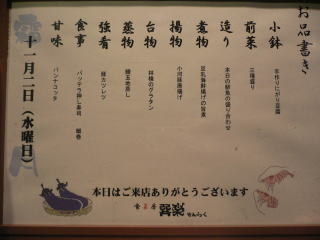 お品書き
小鉢
手作りにがり豆腐
前菜
三種盛り
造り
本日の鮮魚の盛り合わせ
煮物
豆乳海鮮揚げの旨煮
揚物
小河豚唐揚げ
台物
林檎のグラタン
蒸物
鰻玉地蒸し
強肴
豚カツレツ
食事
バッテラ押し寿司 細巻
甘味
パンナコッタ
十一月二日(水曜日)
本日はご来店ありがとうございます
せんらく